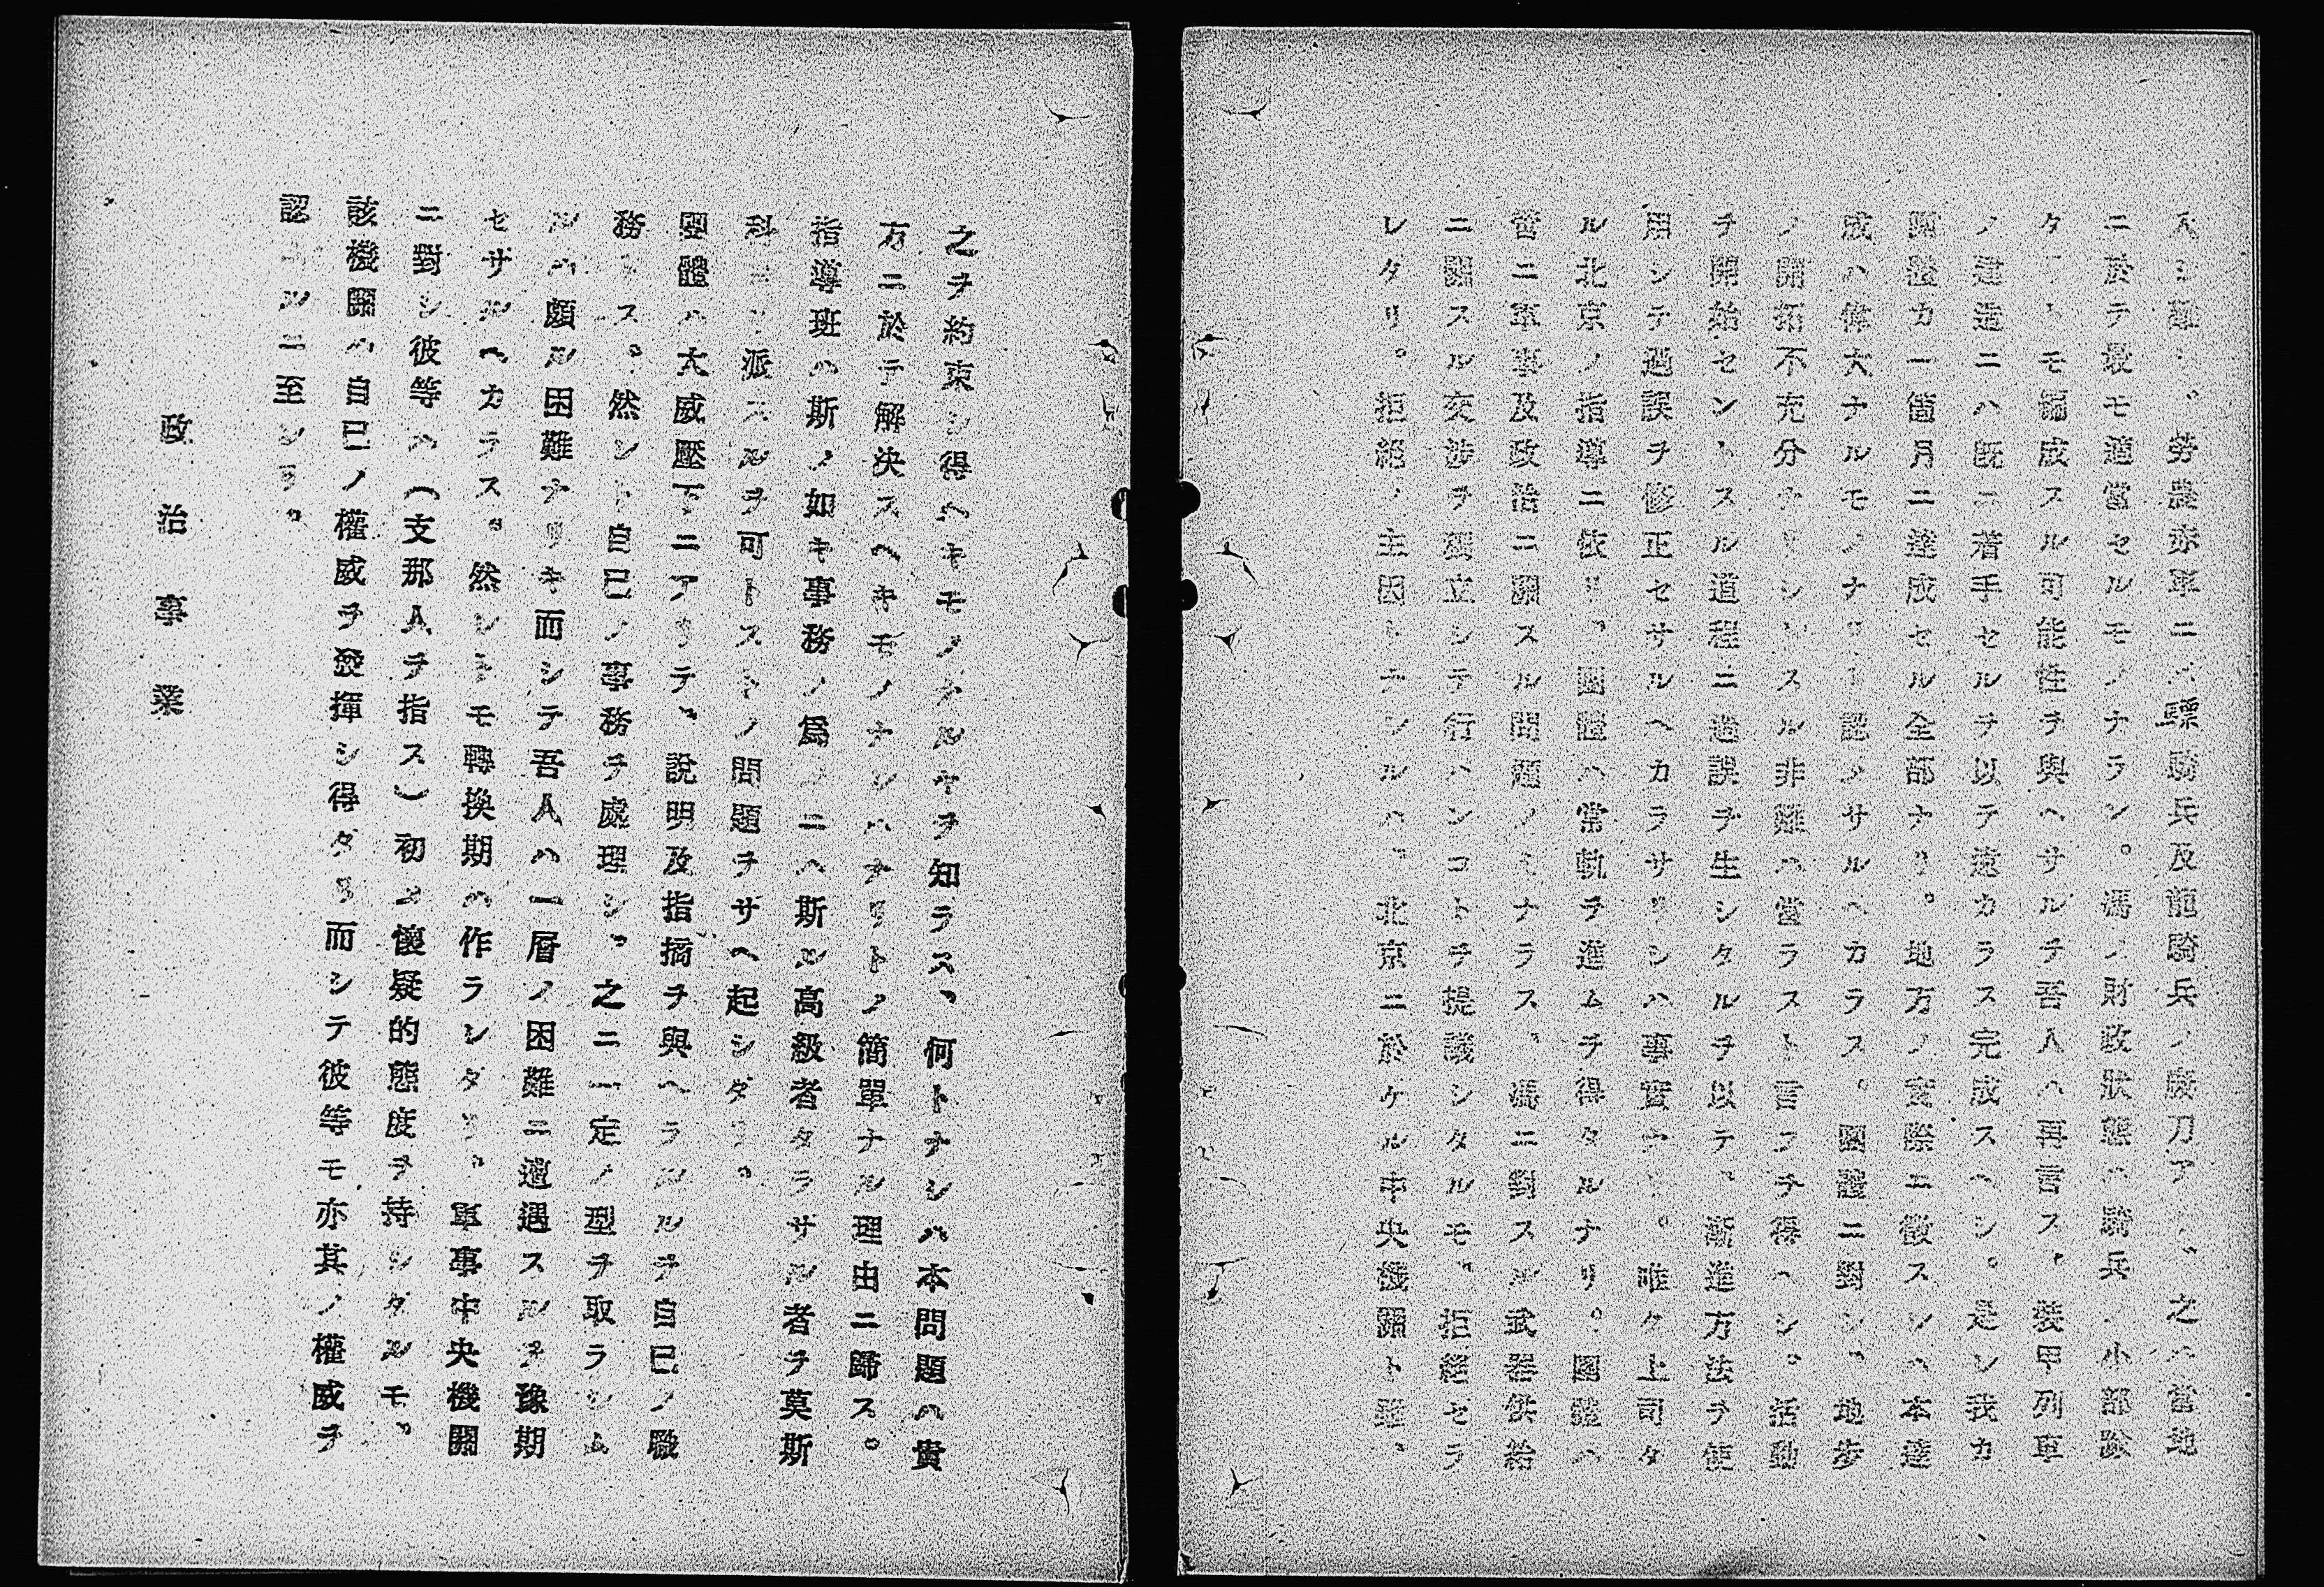 入シ難シ、勞農赤軍ニハ驃騎兵及龍騎兵ノ廢刀ア、之ハ當地
ニ於テ最モ適當セルモノナラン。馮ノ財政狀態ハ騎兵ノ小部隊
タリトモ編成スル可能性ヲ與ヘサルヲ吾人ハ再言ス。裝甲列車
ノ建造ニハ既ニ着手セルヲ以テ遠カラス完成スヘシ。是レ我カ
團體カ一箇月ニ達成セル全部ナリ。地方ノ實際ニ徵スレハ本達
成ハ偉大ナルモノナリト認メサルヘカラス。團體ニ對シ、地步
ノ開拓不充分ナリシトスル非難ハ當ラスト言フヲ得ヘシ。活動
ヲ開始セントスル道程ニ過誤ヲ生シタルヲ以テ、漸進方法ヲ使
用シテ過誤ヲ修正セサルヘカラサリシハ事實ナリ。唯タ上司タ
ル北京ノ指導ニ依リ、團體ハ常軌ヲ進ムヲ得タルナリ。團體ハ
啻ニ軍事及政治ニ關スル問題ノミナラス、馮ニ對スル武器供給
ニ關スル交涉ヲ獨立シテ行ハンコトヲ提議シタルモ、拒絕セラ
レタリ。拒絕ノ主因トテシルハ、北京ニ於ケル中央機關ト雖、
之ヲ約束シ得ヘキモノナルヤヲ知ラス、何トナレハ本問題ハ貴
方ニ於テ解決スヘキモノナレハナリトノ簡單ナル理由ニ歸ス。
指導班ハ斯ノ如キ事務ノ爲メニハ斯ル高級者タラザル者ヲ莫斯
科ニ派スルヲ可トストノ問題ヲサヘ起シタリ。
團體ハ大威壓下ニアリテ、說明及指摘ヲ與ヘラルルヲ自己ノ職
務トス。然レト自己ノ事務ヲ處理シ、之ニ一定ノ型ヲ取ラシム
ルハ頗ル困難ナリキ而シテ吾人ハ一層ノ困難ニ遭遇スルヲ豫期
セサルヘカラス。然レトモ轉換期ハ作ラレタリ。軍事中央機關
ニ對シ彼等ハ（支那人ヲ指ス）初メ懷疑的態度ヲ持シタルモ、
該機關ハ自己ノ權威ヲ發揮シ得タリ而シテ彼等モ亦其ノ權威ヲ
認ムルニ至レリ。
政治事業